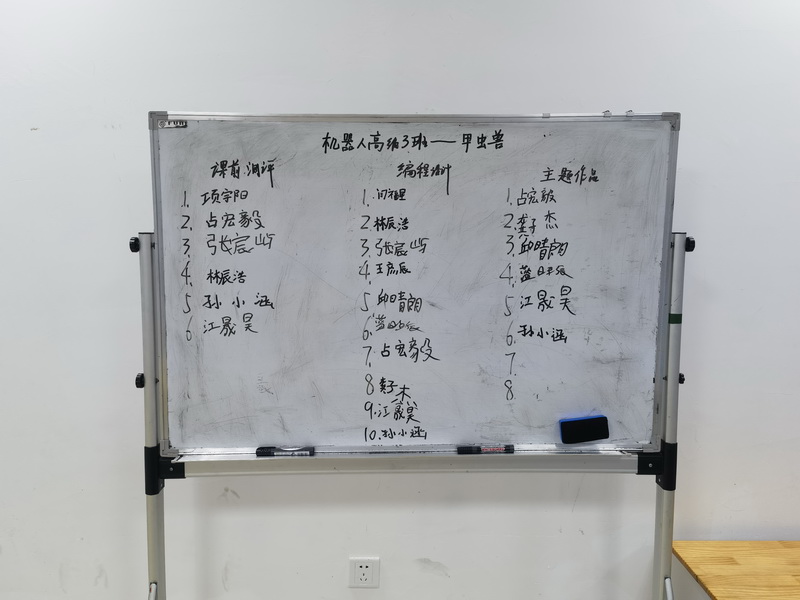 机器人高级3班——甲虫兽
课前测评
1. 项宇阳
2. 占宏毅
3. 张宸屿
4. 林辰浩
5 孙小涵
6 江晟昊
编程设计
1.
2 林辰浩
3. 张宸屿
4. 王宸
5 邱晴朗
6. 蓝
7. 占宏毅
8
9. 江晟昊
10. 孙小涵
主题作品
1. 占宏毅
2. 龚子杰
3. 邱晴朗
4. 蓝
5 江晟昊
6. 孙小涵
7.
8.